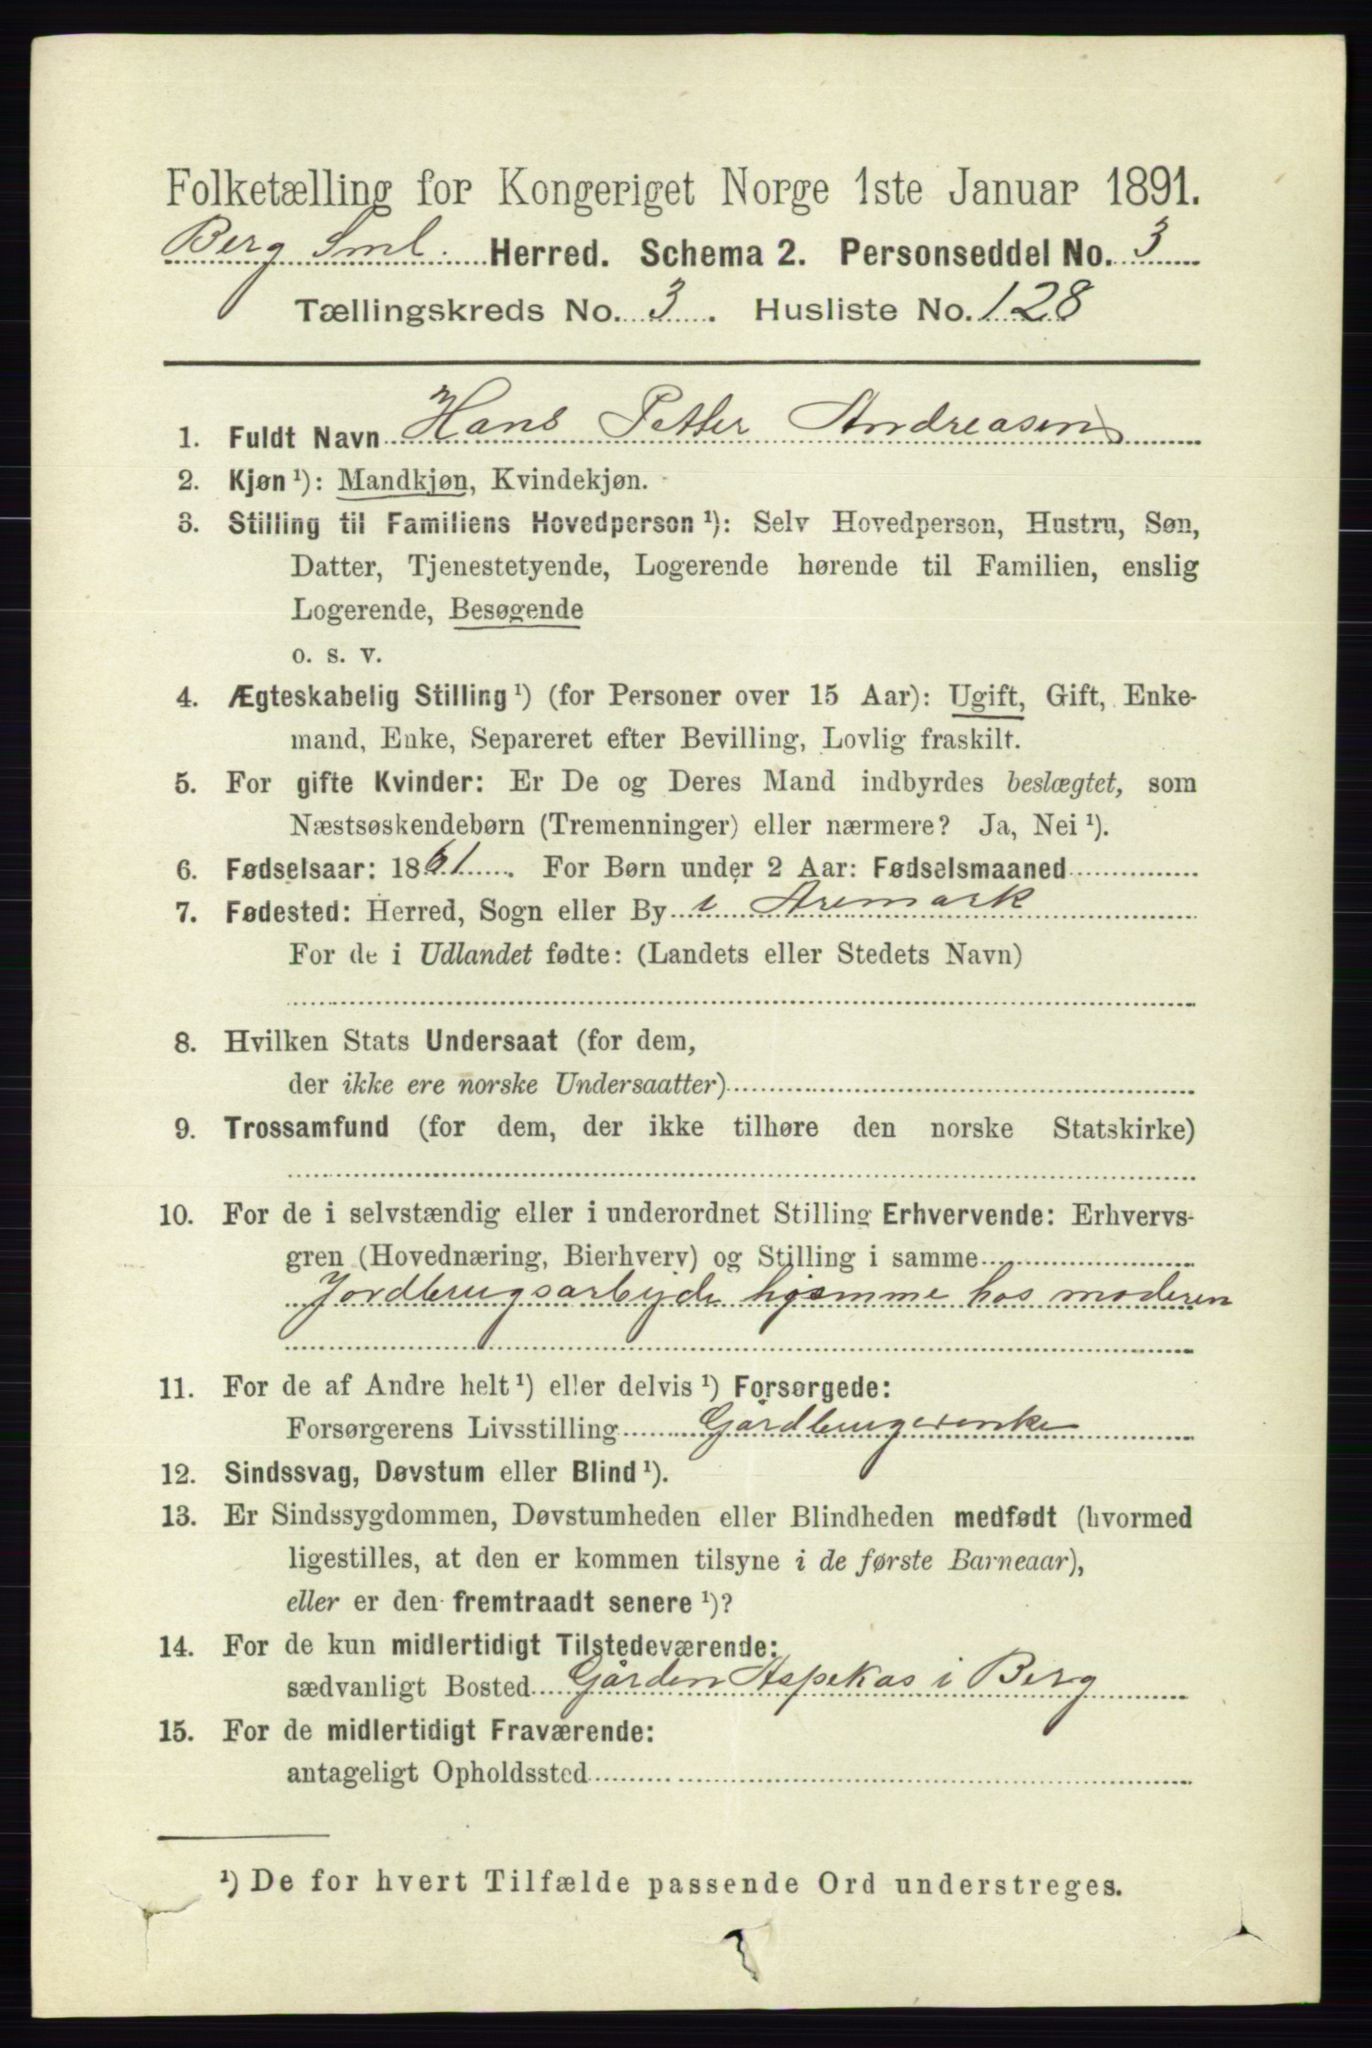 Folketælling for Kongeriget Norge 1ste Januar 1891.
Berg Sml. Herred. Schema 2. Personseddel No. 3
Tællingskreds No. 3. Husliste No. 128
1. Fuldt Navn Hans Petter Andreasen
2. Kjøn ¹): Mandkjøn, Kvindekjøn.
3. Stilling til Familiens Hovedperson ¹): Selv Hovedperson, Hustru, Søn,
Datter, Tjenestetyende, Logerende hørende til Familien, enslig
Logerende, Besøgende
o. s. v.
4. Ægteskabelig Stilling ¹) (for Personer over 15 Aar): Ugift, Gift, Enke-
mand, Enke, Separeret efter Bevilling, Lovlig fraskilt.
5. For gifte Kvinder: Er De og Deres Mand indbyrdes beslægtet, som
Næstsøskendebørn (Tremenninger) eller nærmere? Ja, Nei ¹).
6. Fødselsaar: 1861. For Børn under 2 Aar: Fødselsmaaned
7. Fødested: Herred, Sogn eller By i Aremark
For de i Udlandet fødte: (Landets eller Stedets Navn)
8. Hvilken Stats Undersaat (for dem,
der ikke ere norske Undersaatter)
9. Trossamfund (for dem, der ikke tilhøre den norske Statskirke)
10. For de i selvstændig eller i underordnet Stilling Erhvervende: Erhvervs-
gren (Hovednæring, Bierhverv) og Stilling i samme
Jordbrugsarbejde hjemme hos moderen
11. For de af Andre helt ¹) eller delvis ¹) Forsørgede:
Forsørgerens Livsstilling Gårdbrugerenke
12. Sindssvag, Døvstum eller Blind ¹).
13. Er Sindssygdommen, Døvstumheden eller Blindheden medfødt (hvormed
ligestilles, at den er kommen tilsyne i de første Barneaar),
eller er den fremtraadt senere ¹)?
14. For de kun midlertidigt Tilstedeværende:
sædvanligt Bosted Gården Aspekas i Berg
15. For de midlertidigt Fraværende:
antageligt Opholdssted
¹) De for hvert Tilfælde passende Ord understreges.